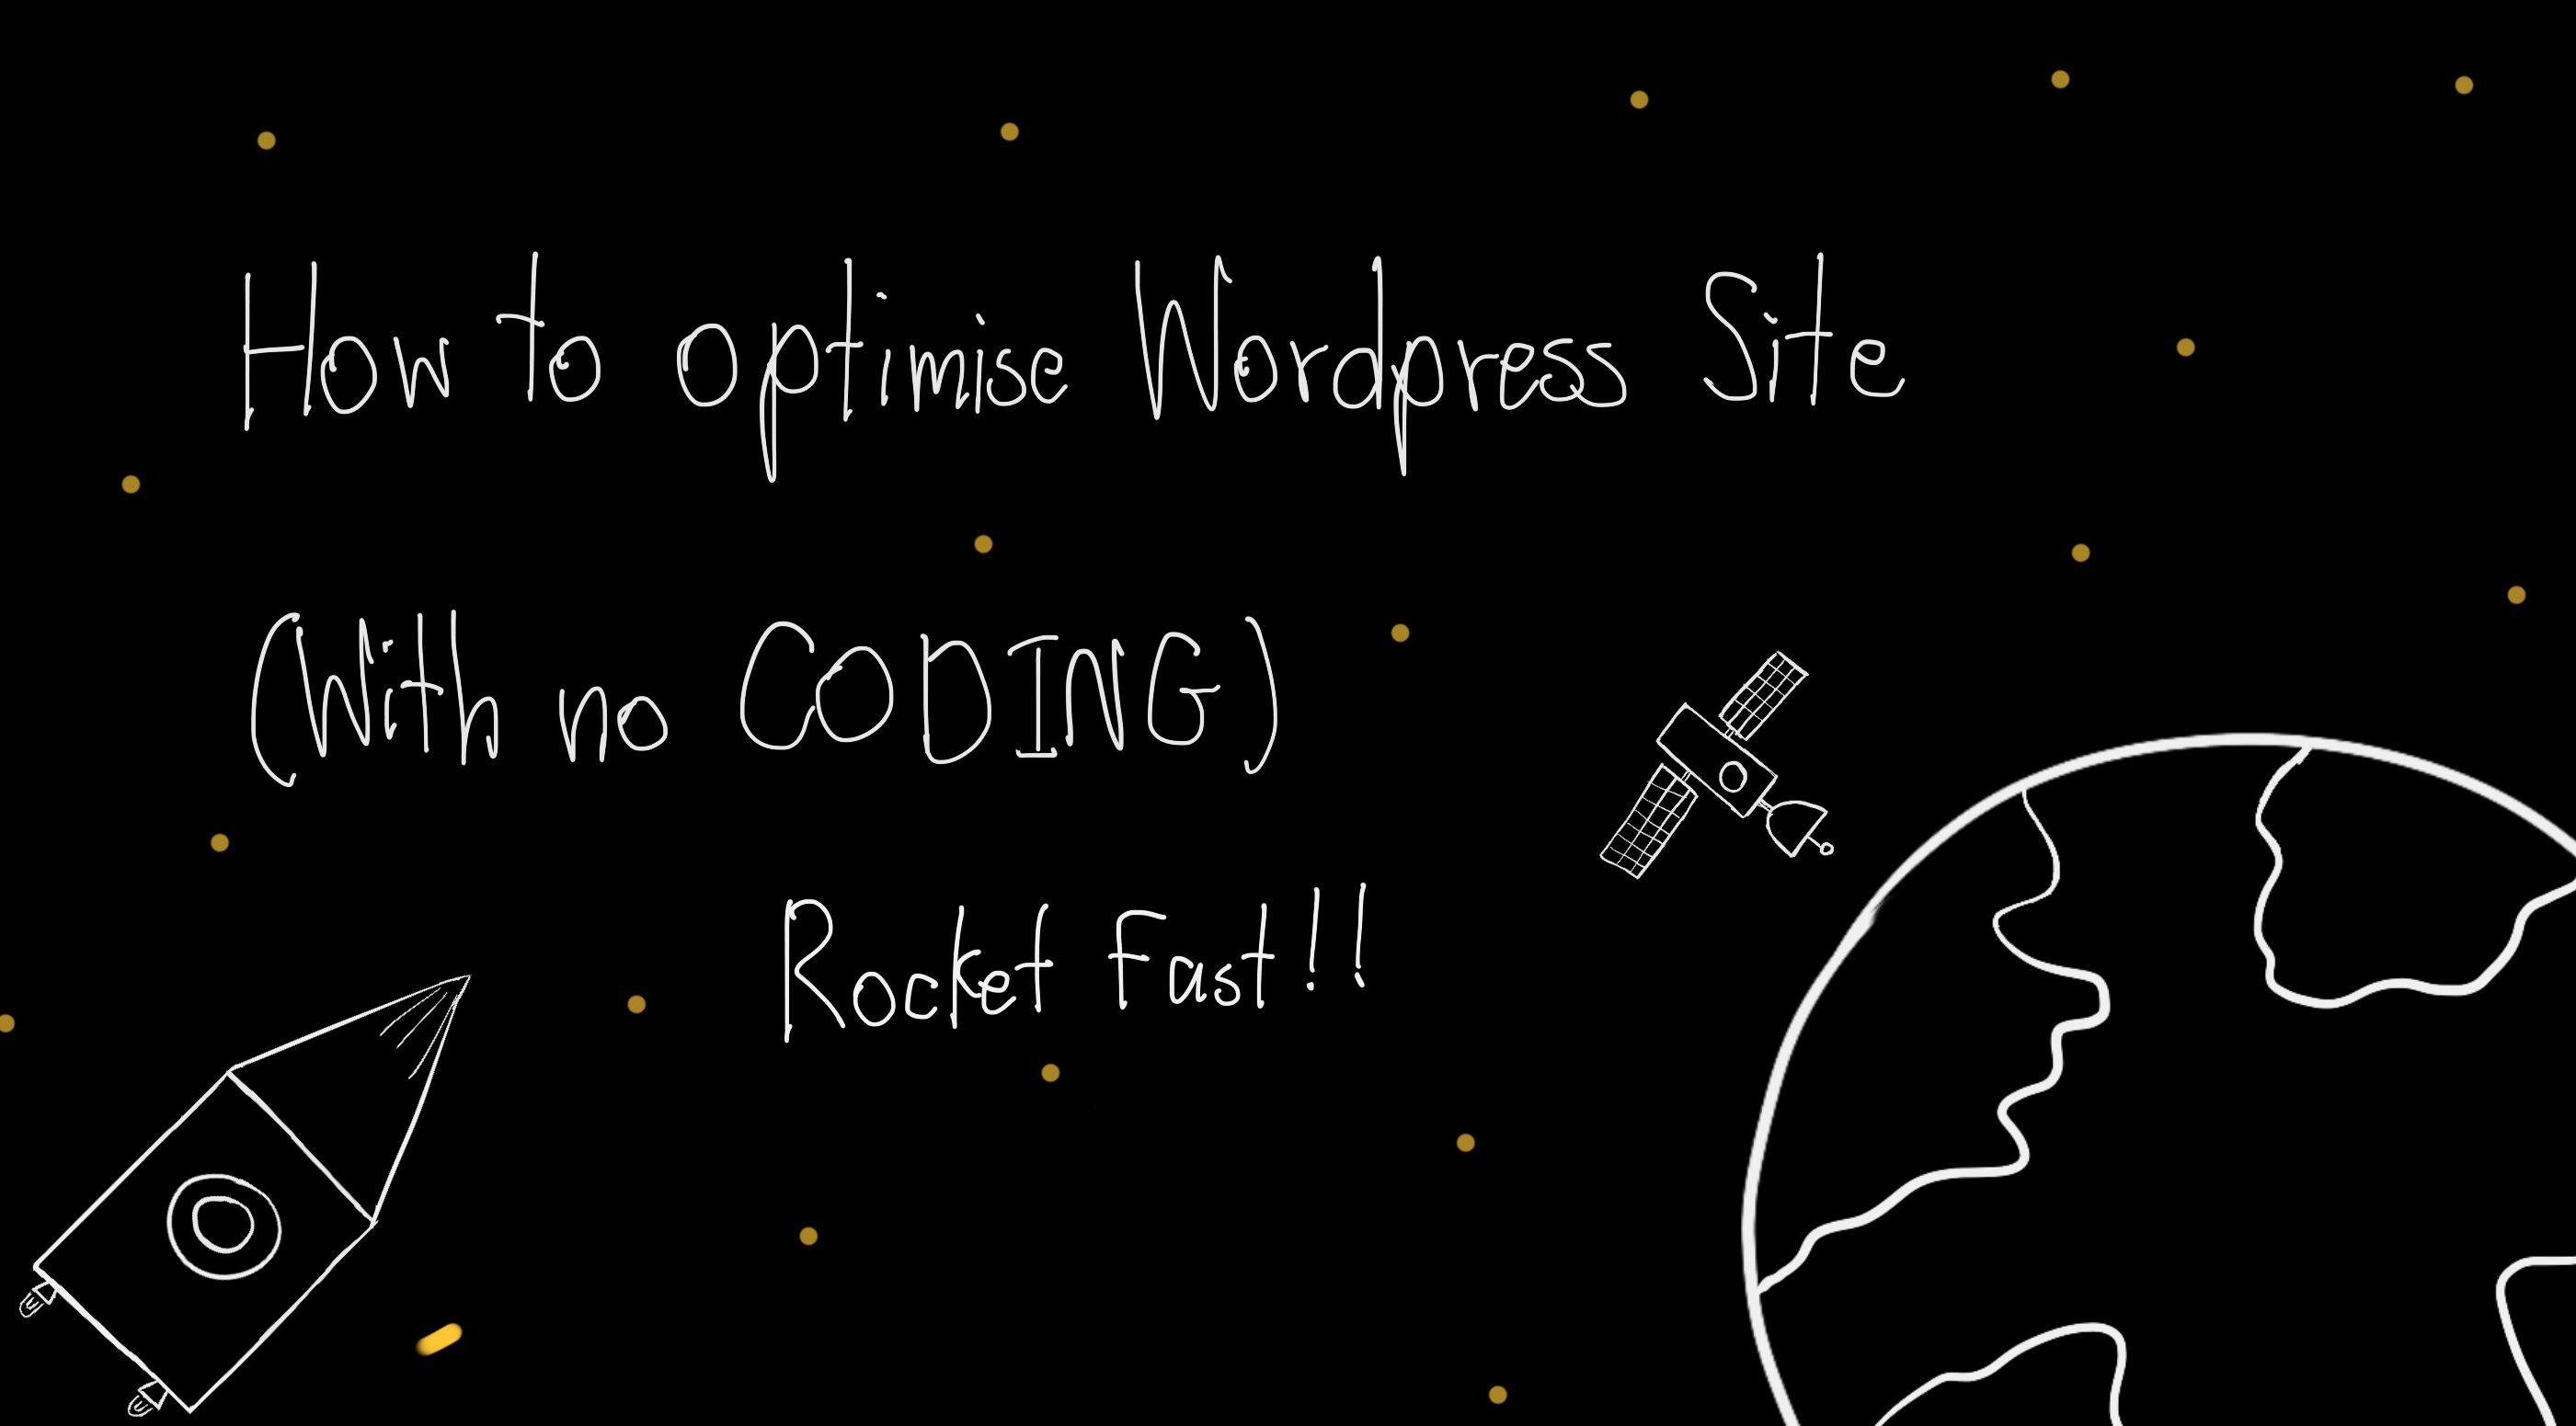 How to optimise Wordpress Site
(With no CODING)
Rocket Fast!!